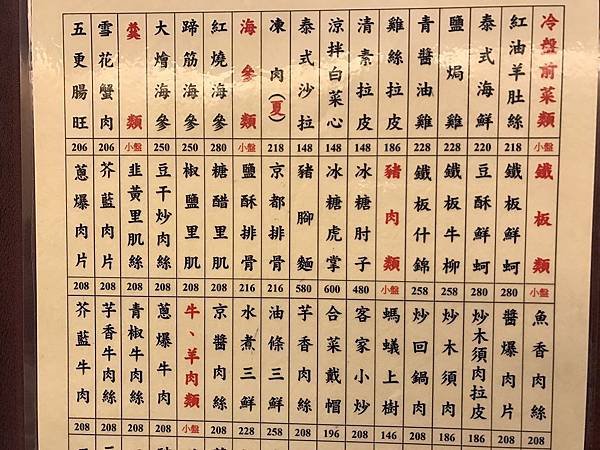 冷盤前菜類 小盤
紅油羊肚絲 218
泰式海鮮 220
鹽焗雞 228
青醬油雞 228
雞絲拉皮 186
清素拉皮 148
涼拌白菜心 148
泰式沙拉 148
凍肉(夏) 218
海參類 小盤
紅燒海參 280
蹄筋海參 250
大燴海參 250
羹類 小盤
雪花蟹肉 206
五更腸旺 206
鐵板類 小盤
鐵板鮮蚵 280
豆酥鮮蚵 280
鐵板牛柳 258
鐵板什錦 258
豬肉類 小盤
冰糖肘子 480
冰糖虎掌 600
豬腳麵 580
京都排骨 216
鹽酥排骨 216
糖醋里肌 208
椒鹽里肌 208
豆干炒肉絲 208
韭黃里肌絲 208
芥藍肉片 208
蔥爆肉片 208
魚香肉絲 208
醬爆肉片 208
炒木須肉拉皮 186
炒木須肉 186
炒回鍋肉 208
螞蟻上樹 146
客家小炒 208
合菜戴帽 196
芋香肉絲 208
油條三鮮 258
水煮三鮮 228
京醬肉絲 208
牛、羊肉類 小盤
蔥爆牛肉 208
青椒牛肉絲 208
芋香牛肉絲 208
芥藍牛肉 208